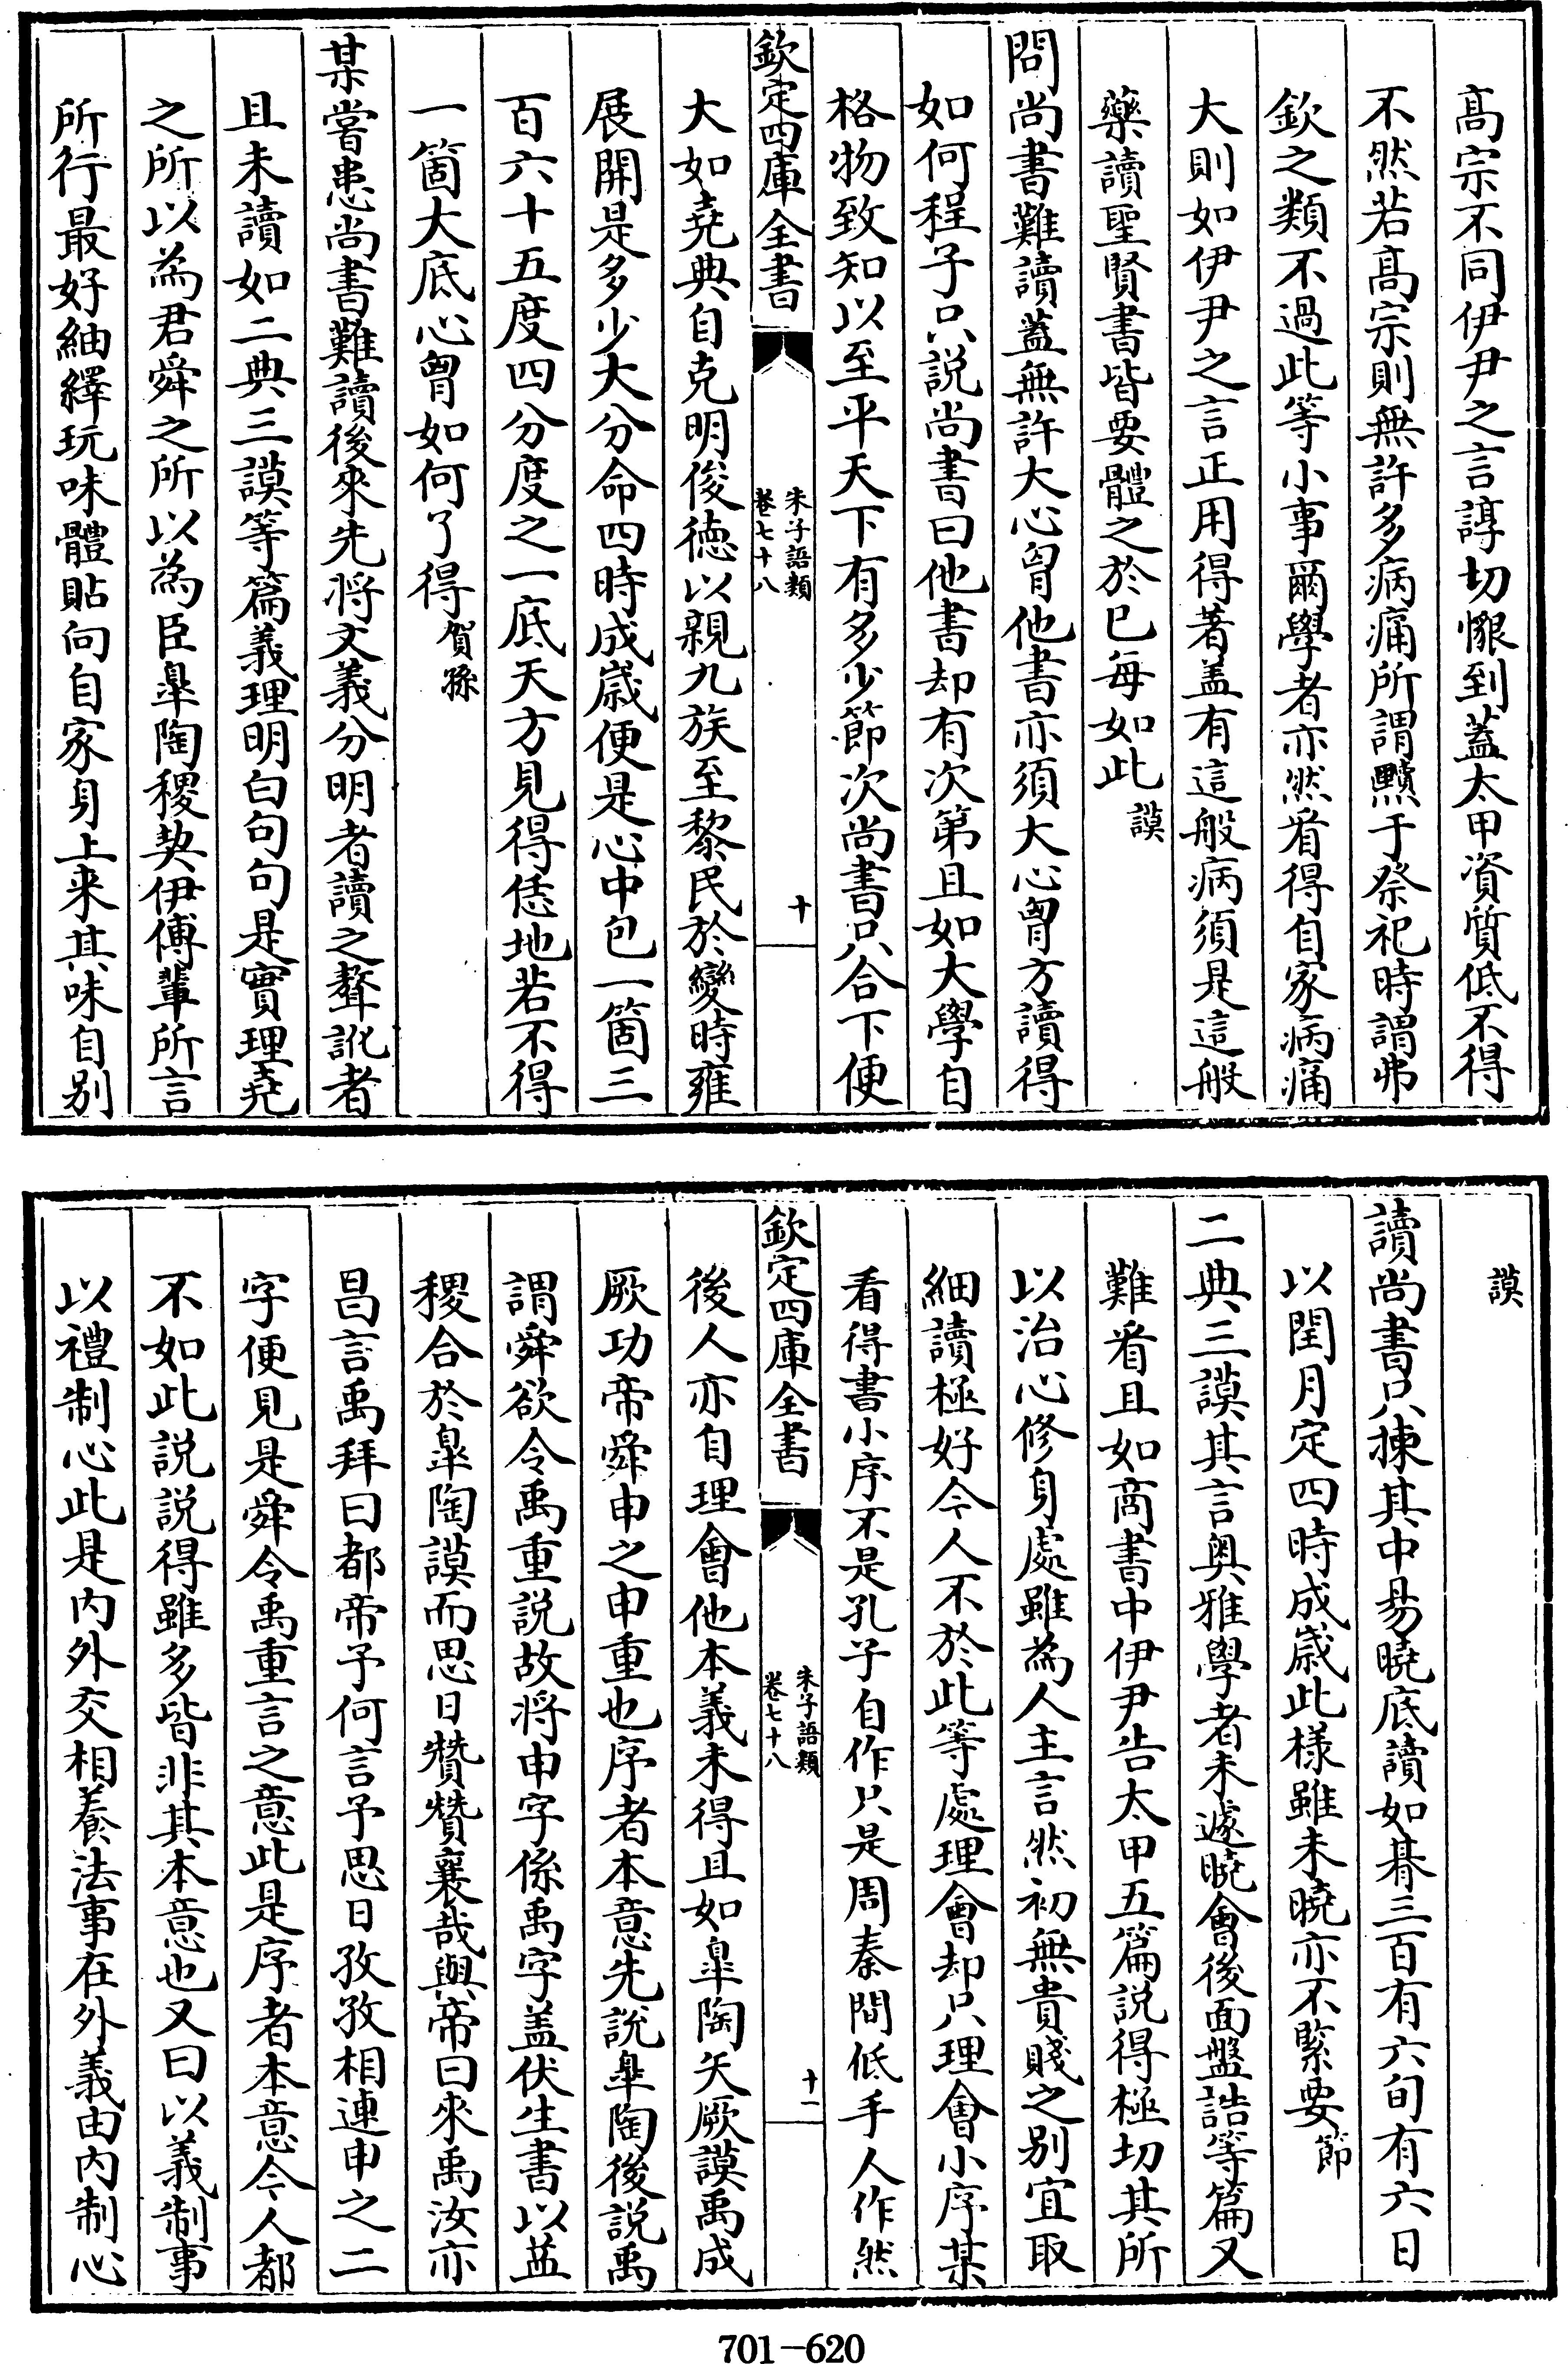 髙宗不同伊尹之言諄切懇到蓋太甲資質低不得
不然若髙宗則無許多病痛所謂黷于祭祀時謂弗
欽之類不過此等小事爾學者亦然看得自家病痛
大則如伊尹之言正用得著盖有這般病須是這般
藥讀聖賢書皆要體之於已每如此謨
問尚書難讀蓋無許大心胷他書亦須大心胷方讀得
如何程子只説尚書曰他書却有次第且如大學自
格物致知以至平天下有多少節次尚書只合下便
欽定四庫全書
朱子語類
卷七十八
十
大如堯典自克明俊徳以親九族至黎民於變時雍
展開是多少大分命四時成嵗便是心中包一箇三
百六十五度四分度之一底天方見得恁地若不得
一箇大底心胷如何了得賀孫
某嘗患尚書難讀後來先将文義分明者讀之聱訛者
且未讀如二典三謨等篇義理明白句句是實理堯
之所以為君舜之所以為臣臯陶稷契伊傅輩所言
所行最好紬繹玩味體貼向自家身上来其味自别
謨
讀尚書只揀其中易曉底讀如朞三百有六旬有六日
以閏月定四時成嵗此様雖未曉亦不緊要節
二典三謨其言奥雅學者未遽曉會後面盤誥等篇又
難看且如商書中伊尹告太甲五篇説得極切其所
以治心修身處雖為人主言然初無貴賤之别宜取
細讀極好今人不於此等處理會却只理會小序某
看得書小序不是孔子自作只是周秦間低手人作然
欽定四庫全書
朱子語類
卷七十八
十一
後人亦自理會他本義未得且如臯陶矢厥謨禹成
厥功帝舜申之申重也序者本意先說臯陶後説禹
謂舜欲令禹重説故将申字係禹字盖伏生書以益
稷合於臯陶謨而思日贊贊襄哉與帝曰來禹汝亦
昌言禹拜曰都帝予何言予思日孜孜相連申之二
字便見是舜令禹重言之意此是序者本意今人都
不如此説説得雖多皆非其本意也又曰以義制事
以禮制心此是内外交相養法事在外義由内制心
701-620